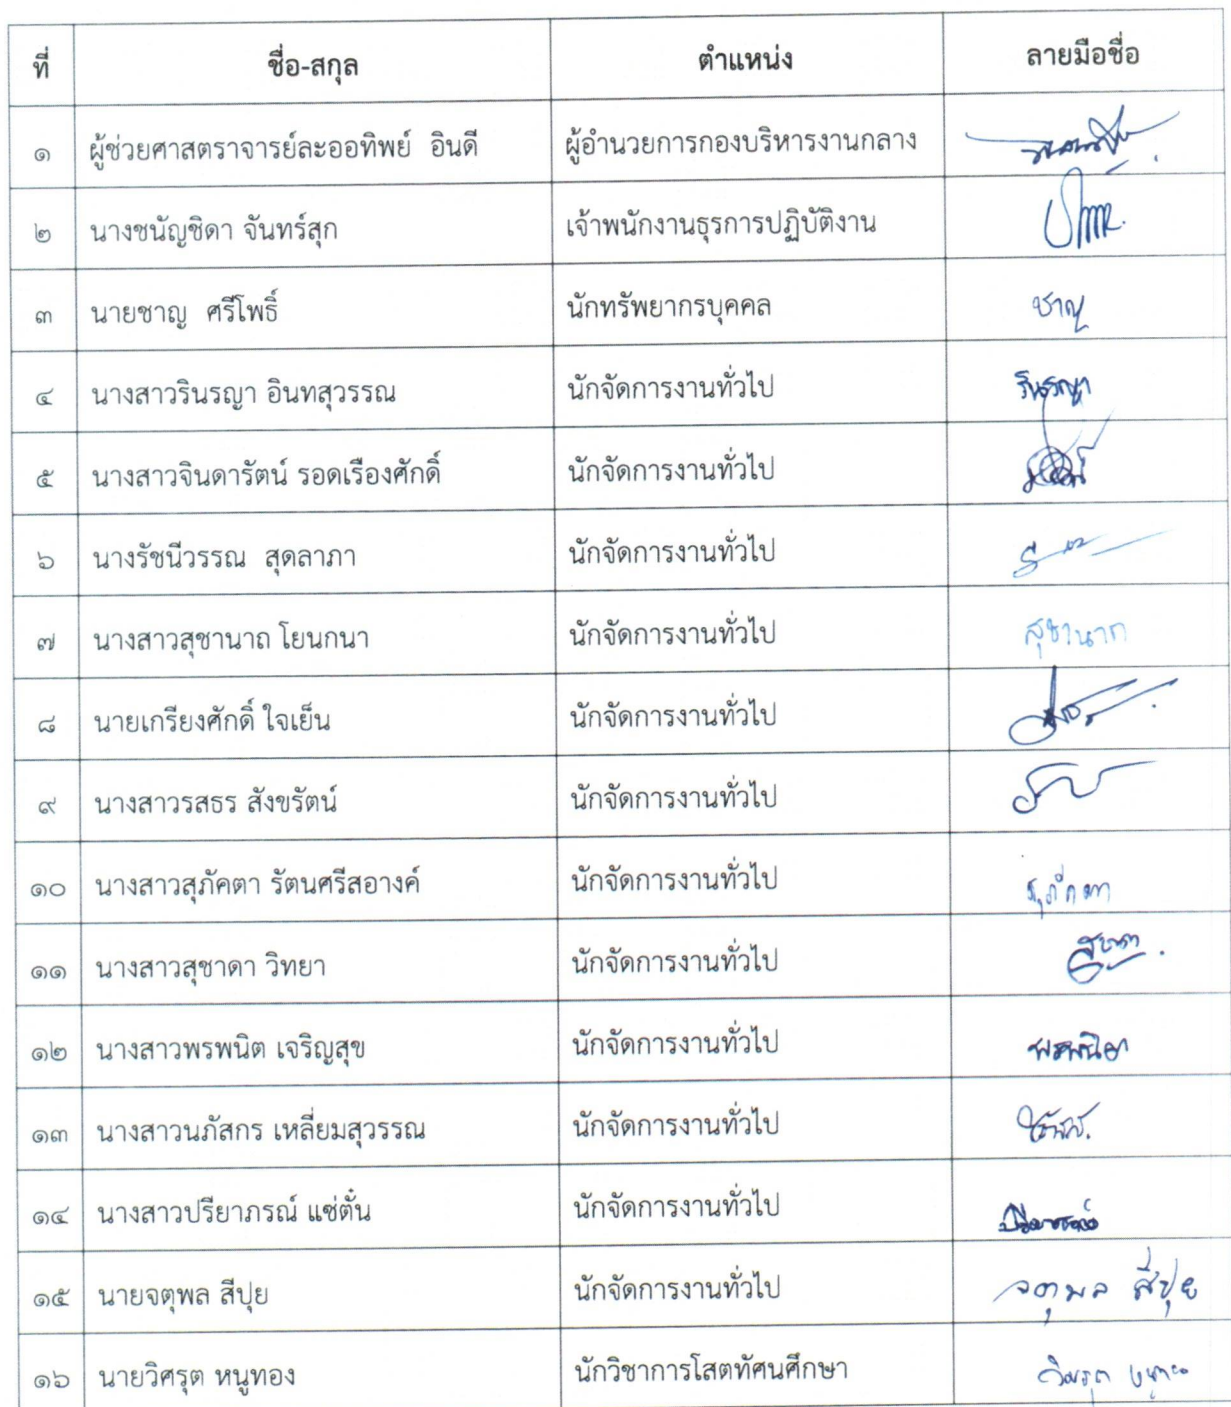 ที่ ชื่อ-สกุล ตำแหน่ง ลายมือชื่อ
๑ ผู้ช่วยศาสตราจารย์ละออทิพย์ อินดี ผู้อำนวยการกองบริหารงานกลาง
๒ นางชนัญชิดา จันทร์สุก เจ้าพนักงานธุรการปฏิบัติงาน
๓ นายชาญ ศรีโพธิ์ นักทรัพยากรบุคคล ชาญ
๔ นางสาวรินรญา อินทสุวรรณ นักจัดการงานทั่วไป รินรญา
๕ นางสาวจินดารัตน์ รอดเรืองศักดิ์ นักจัดการงานทั่วไป
๖ นางรัชนีวรรณ สุดลาภา นักจัดการงานทั่วไป
๗ นางสาวสุชานาถ โยนกนา นักจัดการงานทั่วไป สุชานาถ
๘ นายเกรียงศักดิ์ ใจเย็น นักจัดการงานทั่วไป
๙ นางสาวรสธร สังขรัตน์ นักจัดการงานทั่วไป
๑๐ นางสาวสุภัคตา รัตนศรีสอางค์ นักจัดการงานทั่วไป สุภัคตา
๑๑ นางสาวสุชาดา วิทยา นักจัดการงานทั่วไป สุชาดา
๑๒ นางสาวพรพนิต เจริญสุข นักจัดการงานทั่วไป พรพนิต
๑๓ นางสาวนภัสกร เหลี่ยมสุวรรณ นักจัดการงานทั่วไป
๑๔ นางสาวปรียาภรณ์ แซ่ตั๋น นักจัดการงานทั่วไป ปรียาภรณ์
๑๕ นายจตุพล สีปุย นักจัดการงานทั่วไป จตุพล สีปุย
๑๖ นายวิศรุต หนูทอง นักวิชาการโสตทัศนศึกษา วิศรุต หนูทอง